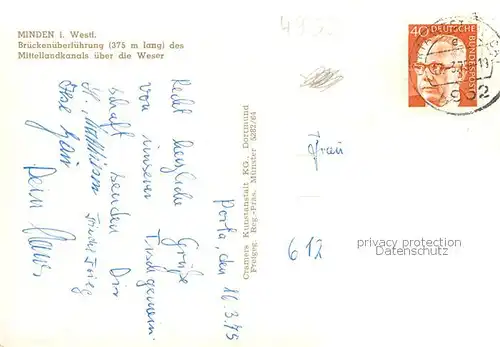 MINDEN i. Westf.
Brückenüberführung (375 m lang) des
Mittellandkanals über die Weser
4952
40
DEUTSCHE
BUNDESPOST
Porta, den 16.3.75
Recht herzliche Grüße
von unserer Tischgemein-
schaft senden Dir
Dein
Cramers Kunstanstalt KG., Dortmund
Freigeg. Reg.-Präs. Münster 5282/64
Frau
612
privacy protection
Datenschutz